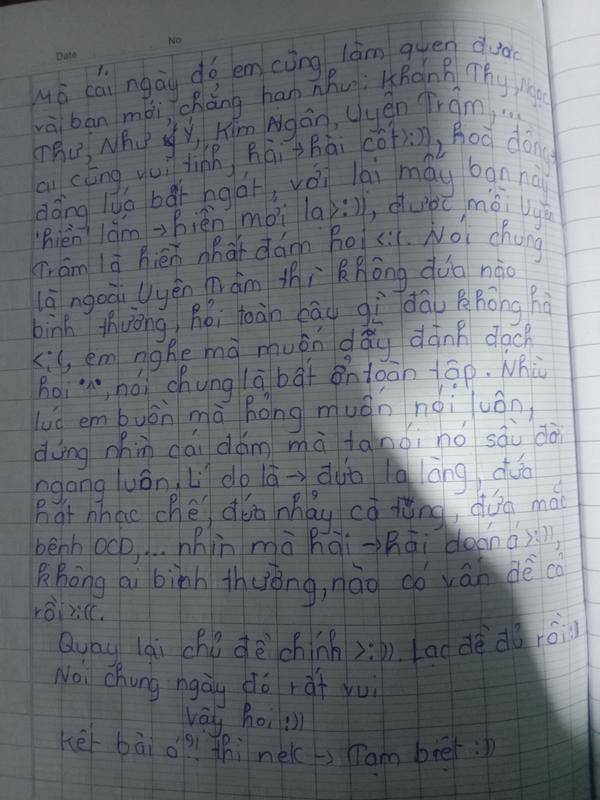 Date No
Mà cái ngày đó em cũng làm quen được
vài bạn mới, chẳng hạn như: Khánh Thy, Ngọc
Thư, Như Ý, Kim Ngân, Uyên Trâm,...
ai cũng vui tính, hài → hài cốt >:)), hoà đồng →
đồng lúa bất ngát, với lại mấy bạn này
"hiền" lắm → hiền mới lạ >:)), được mỗi Uyên
Trâm là hiền nhất đám hoi <:(. Nói chung
là ngoài Uyên Trâm thì không đứa nào
bình thường, hỏi toàn câu gì đâu không hà
<:(, em nghe mà muốn dẫy đành đạch
hoi "^", nói chung là bất ổn toàn tập. Nhìu
lúc em buồn mà hỏng muốn nói luôn,
đứng nhìn cái đám mà ta nói nó sầu đời
ngang luôn. Lí do là → đứa la làng, đứa
hát nhạc chế, đứa nhảy cà tửng, đứa mắc
bệnh OCD,... nhìn mà hài → hài doán á >:)),
không ai bình thường, nào có vấn đề cả
rồi >:((.
Quay lại chủ đề chính >:)). Lạc đề đủ rồi :))
Nói chung ngày đó rất vui
vậy hoi :))
Kết bài ó?! thì nek → Tạm biệt :))